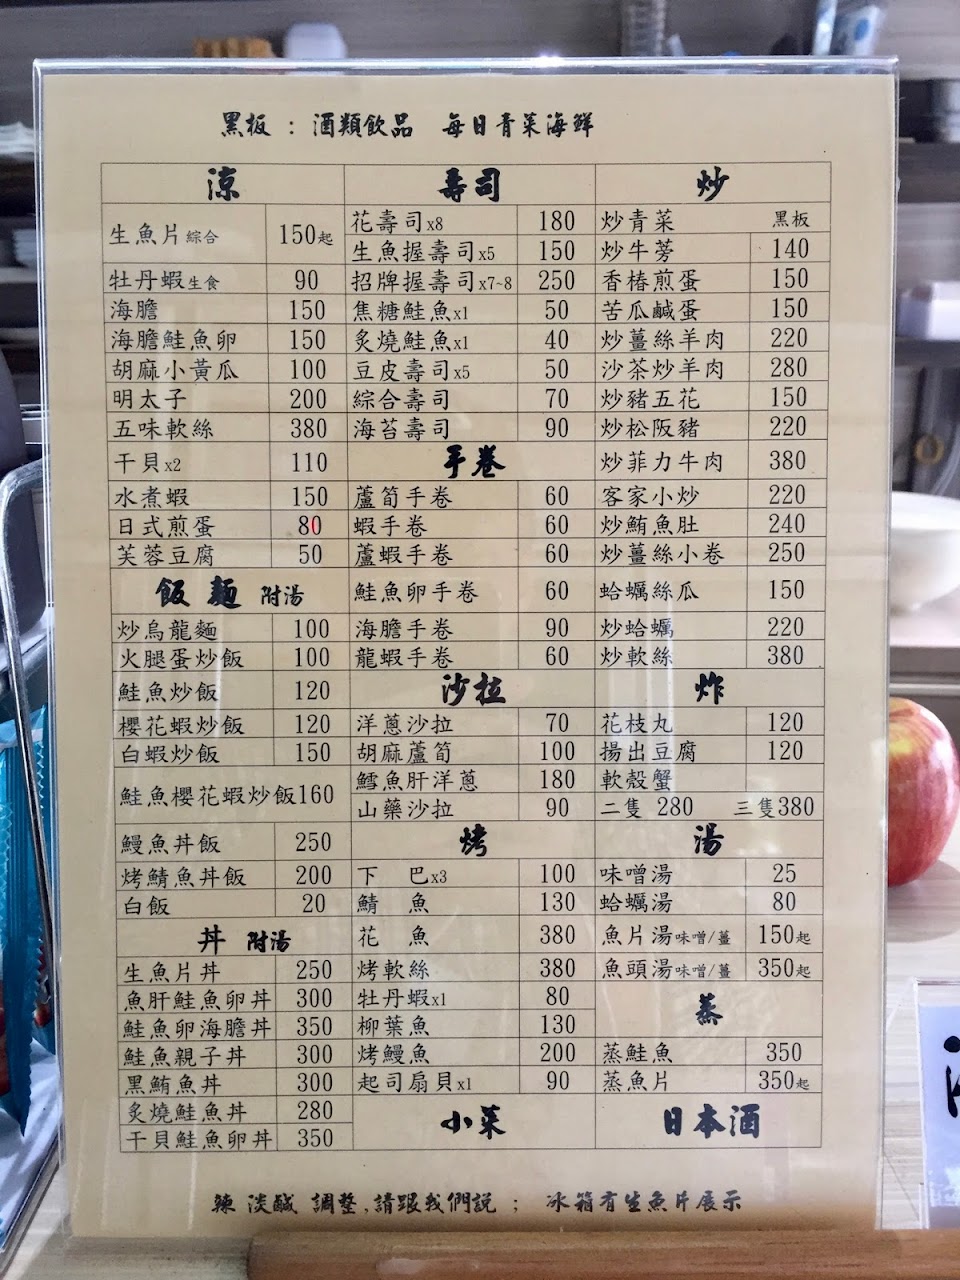 黑板 : 酒類飲品 每日青菜海鮮
涼
生魚片綜合 150起
牡丹蝦生食 90
海膽 150
海膽鮭魚卵 150
胡麻小黃瓜 100
明太子 200
五味軟絲 380
干貝x2 110
水煮蝦 150
日式煎蛋 80
芙蓉豆腐 50
飯麵 附湯
炒烏龍麵 100
火腿蛋炒飯 100
鮭魚炒飯 120
櫻花蝦炒飯 120
白蝦炒飯 150
鮭魚櫻花蝦炒飯160
鰻魚丼飯 250
烤鯖魚丼飯 200
白飯 20
丼 附湯
生魚片丼 250
魚肝鮭魚卵丼 300
鮭魚卵海膽丼 350
鮭魚親子丼 300
黑鮪魚丼 300
炙燒鮭魚丼 280
干貝鮭魚卵丼 350
壽司
花壽司x8 180
生魚握壽司x5 150
招牌握壽司x7~8 250
焦糖鮭魚x1 50
炙燒鮭魚x1 40
豆皮壽司x5 50
綜合壽司 70
海苔壽司 90
手卷
蘆筍手卷 60
蝦手卷 60
蘆蝦手卷 60
鮭魚卵手卷 60
海膽手卷 90
龍蝦手卷 60
沙拉
洋蔥沙拉 70
胡麻蘆筍 100
鱈魚肝洋蔥 180
山藥沙拉 90
烤
下 巴x3 100
鯖 魚 130
花 魚 380
烤軟絲 380
牡丹蝦x1 80
柳葉魚 130
烤鰻魚 200
起司扇貝x1 90
小菜
炒
炒青菜 黑板
炒牛蒡 140
香椿煎蛋 150
苦瓜鹹蛋 150
炒薑絲羊肉 220
沙茶炒羊肉 280
炒豬五花 150
炒松阪豬 220
炒菲力牛肉 380
客家小炒 220
炒鮪魚肚 240
炒薑絲小卷 250
蛤蠣絲瓜 150
炒蛤蠣 220
炒軟絲 380
炸
花枝丸 120
揚出豆腐 120
軟殼蟹
二隻 280 三隻380
湯
味噌湯 25
蛤蠣湯 80
魚片湯味噌/薑 150起
魚頭湯味噌/薑 350起
蒸
蒸鮭魚 350
蒸魚片 350起
日本酒
辣 淡鹹 調整,請跟我們說 ; 冰箱有生魚片展示